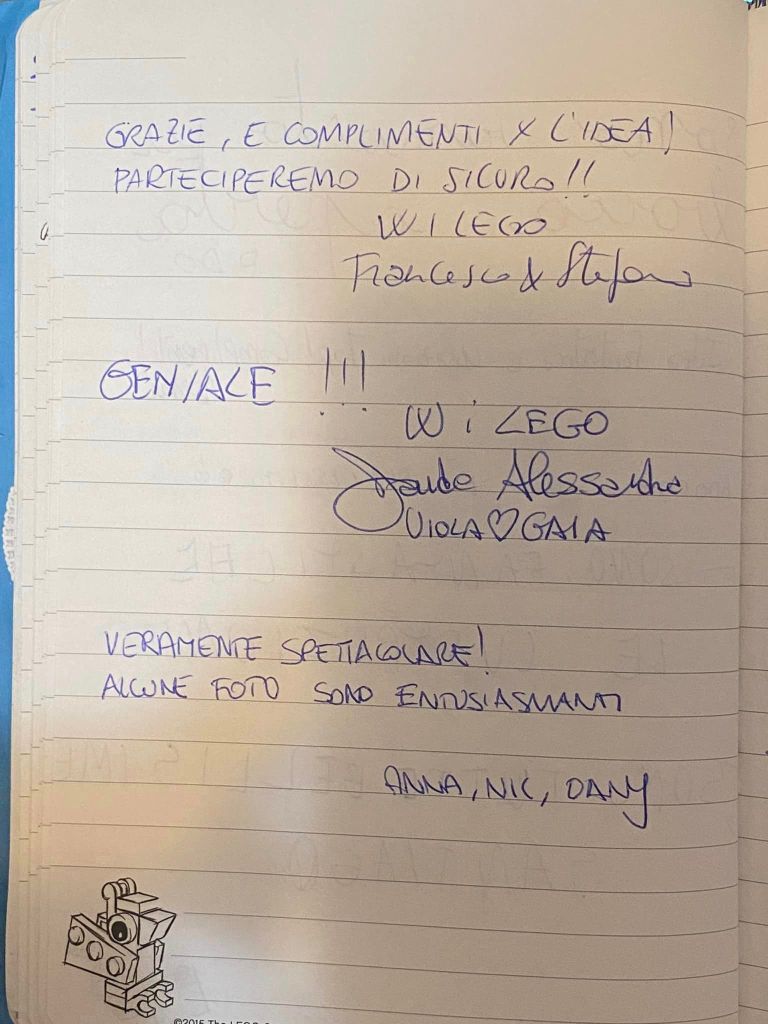 GRAZIE, E COMPLIMENTI X L'IDEA!
PARTECIPEREMO DI SICURO!!
W I LEGO
Francesco & Stefano
GENIALE !!!
W i LEGO
Alessandro
VIOLA♡GAIA
VERAMENTE SPETTACOLARE!
ALCUNE FOTO SONO ENTUSIASMANTI
ANNA, NIC, DANY
©2015 The LEGO